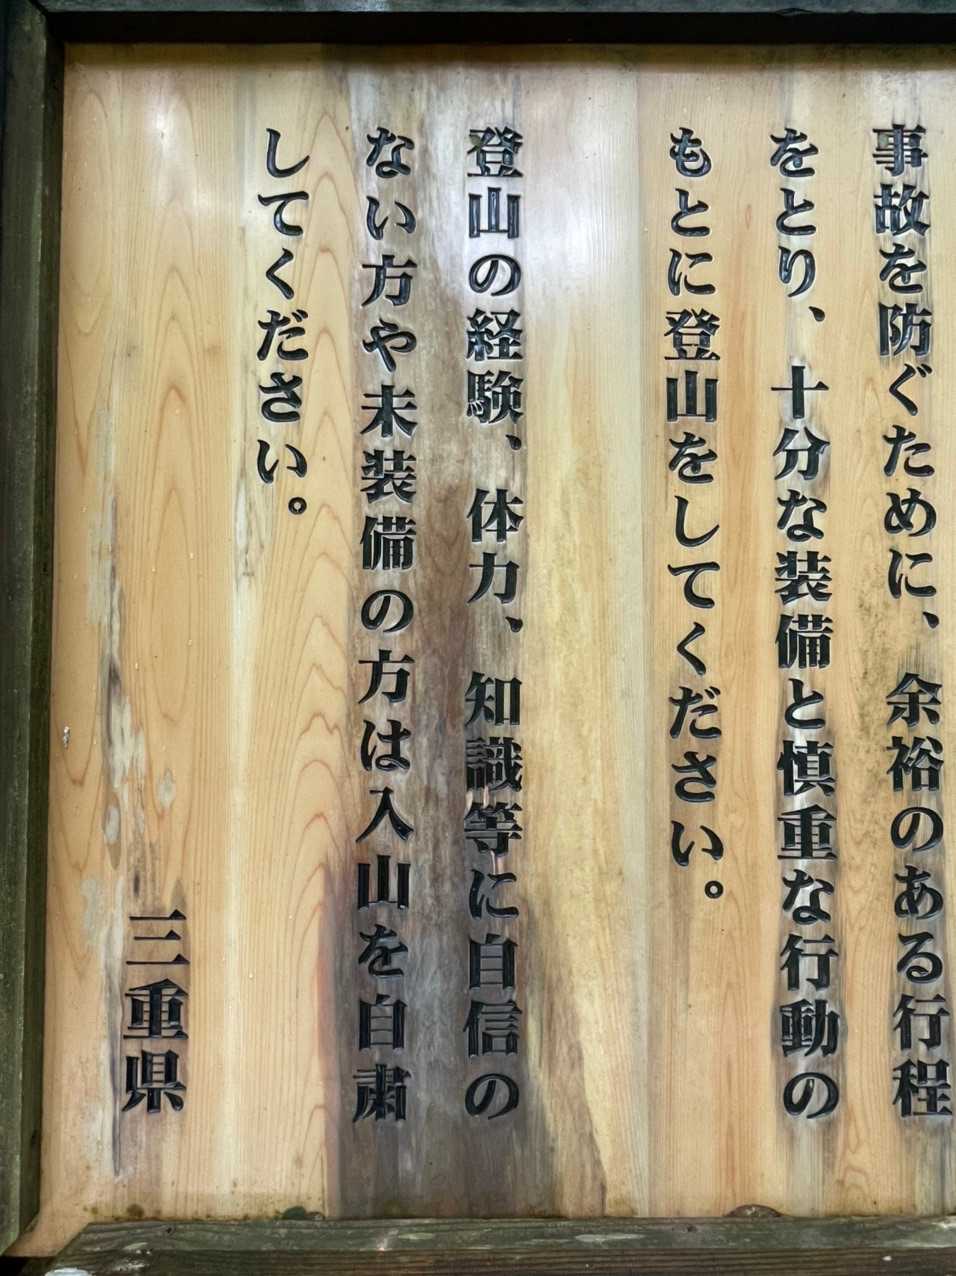 事故を防ぐために、余裕のある行程
をとり、十分な装備と慎重な行動の
もとに登山をしてください。
登山の経験、体力、知識等に自信の
ない方や未装備の方は入山を自粛
してください。
三重県